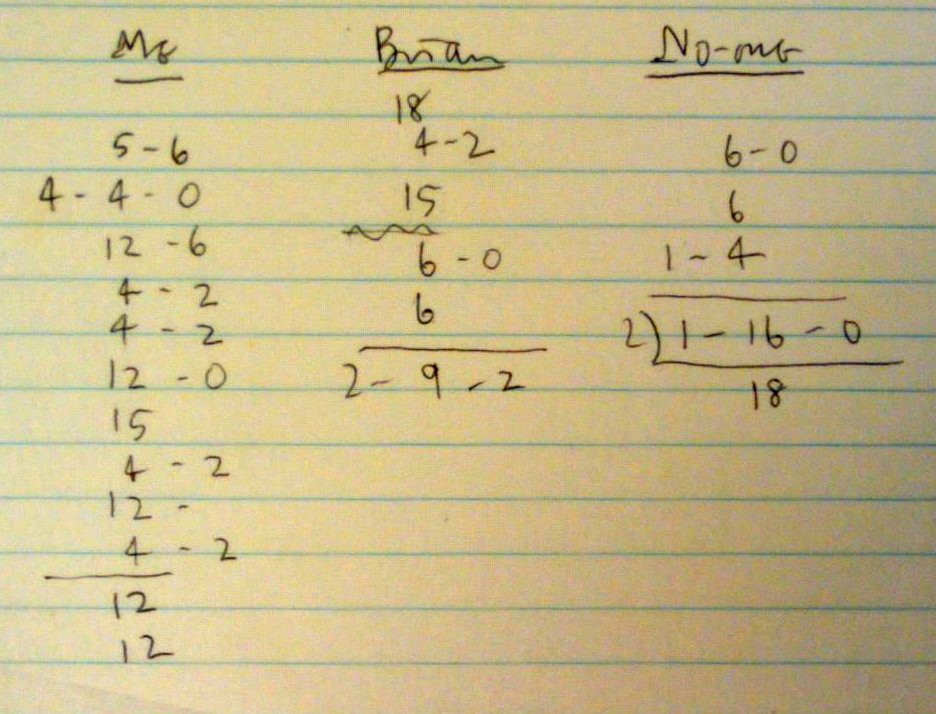 Me Brian No-one
18
5-6 4-2 6-0
4-4-0 15 6
12-6 6-0 1-4
4-2 6
4-2 2)1-16-0
12-0 2-9-2 18
15
4-2
12-
4-2
12
12